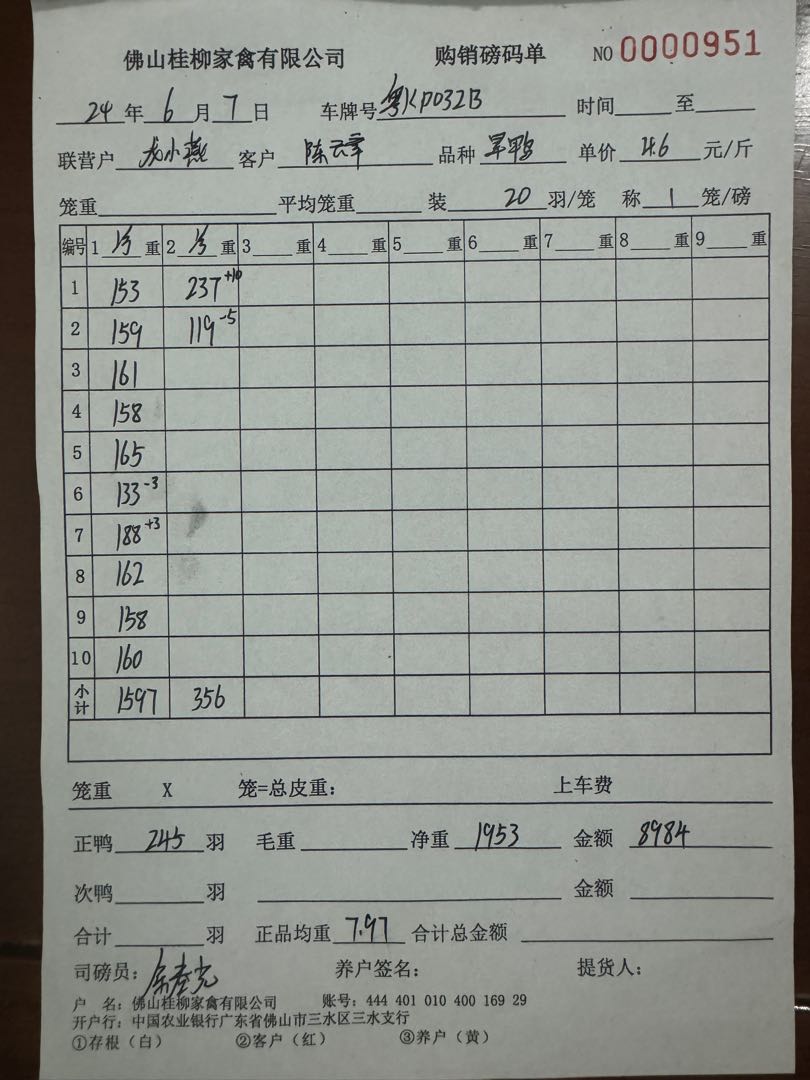 佛山桂柳家禽有限公司 购销磅码单 NO 0000951
24 年 6 月 7 日 车牌号 粤KP032B 时间 至
联营户 龙小燕 客户 陈云 品种 旱鸭 单价 4.6 元/斤
笼重 平均笼重 装 20 羽/笼 称 1 笼/磅
编号 1 重 2 重 3 重 4 重 5 重 6 重 7 重 8 重 9 重
1 153 237 +10
2 159 119 -5
3 161
4 158
5 165
6 133 -3
7 188 +3
8 162
9 158
10 160
小计 1597 356
笼重 X 笼=总皮重: 上车费
正鸭 245 羽 毛重 净重 1953 金额 8984
次鸭 羽 金额
合计 羽 正品均重 7.97 合计总金额
司磅员: 养户签名: 提货人:
户 名: 佛山桂柳家禽有限公司 账号: 444 401 010 400 169 29
开户行: 中国农业银行广东省佛山市三水区三水支行
①存根（白） ②客户（红） ③养户（黄）